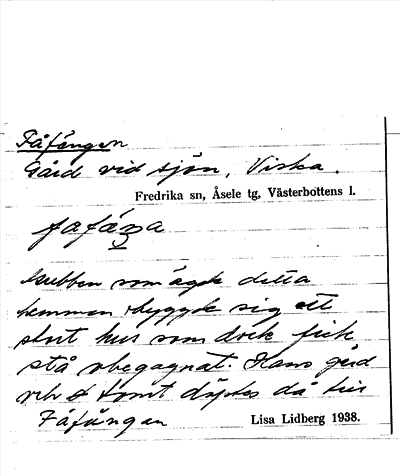 Fåfängen
Gård vid sjön, Viska.
Fredrika sn, Åsele tg, Västerbottens l.
fafáŋa
Gubben som ägde detta
hemman byggde sig ett
stort hus som dock fick
stå obegagnat. Hans gård
och tomt döptes då till
Fåfängan
Lisa Lidberg 1938.